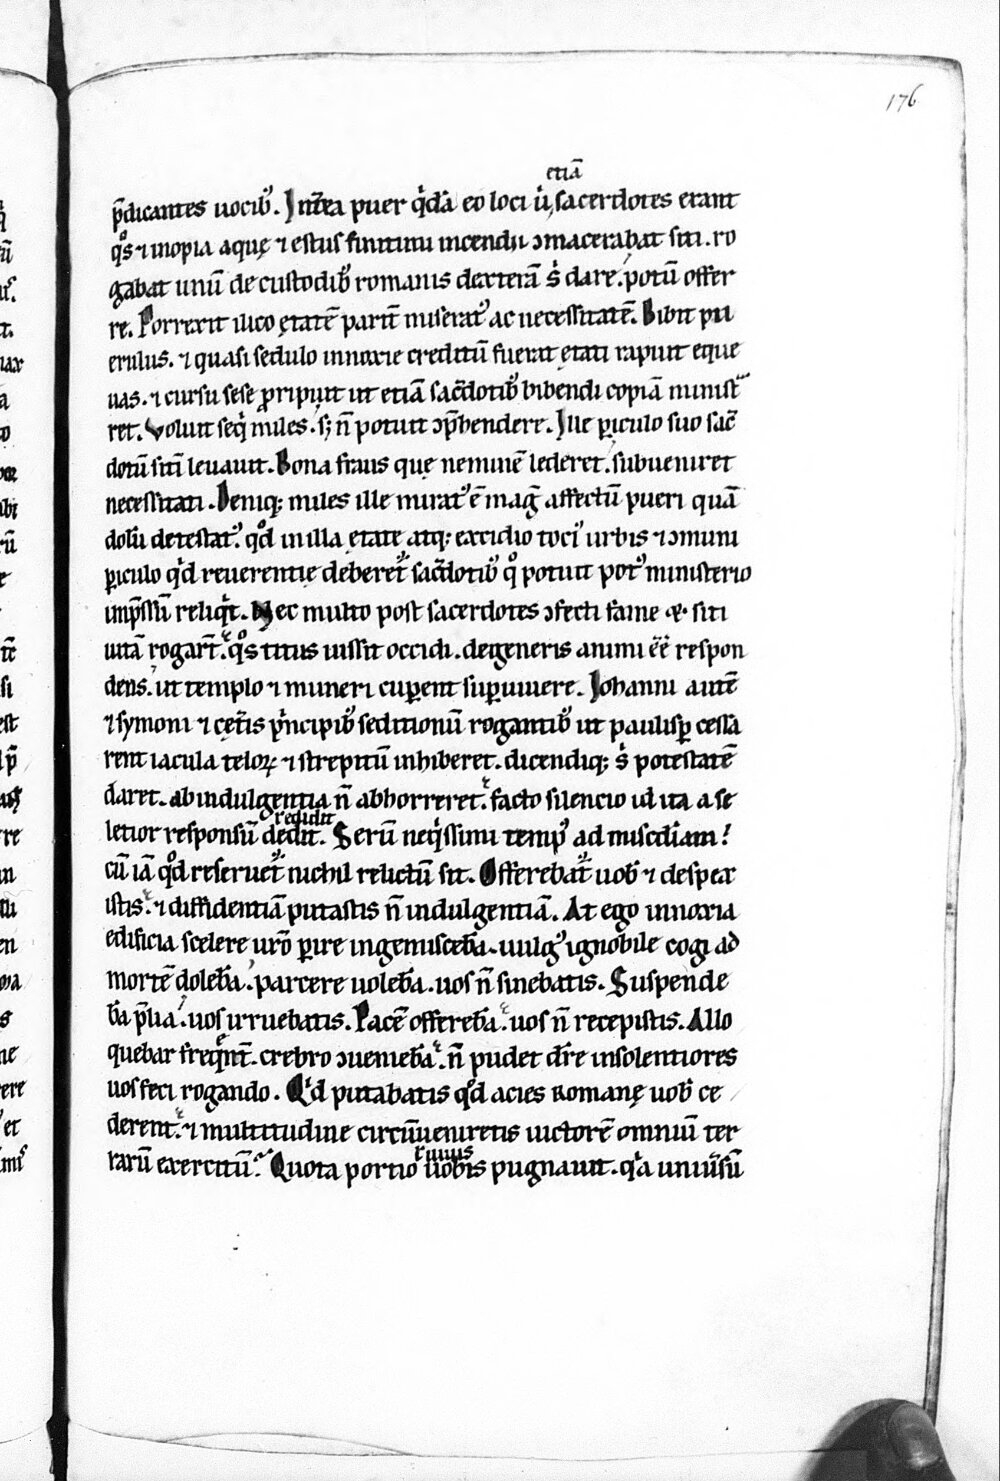 176
etiā
p̄dicantes uocib᷒. Int̄ea puer q̇dā eo loci u̇ sacerdotes erant
q̊s ⁊ inopia aquę ⁊ estus finitimi incendii ɔmacerabat siti. ro
gabat unū de custodib᷒ romanis dexterā s᷒ dare. potū offer
re. Porrexit ilico ętatē parit̄ miserat᷒ ac necessitatē. Bibit pu
erulus. ⁊ quasi sedulo innoxie creditū fuerat ętati rapuit eque
uas. ⁊ cursu sese ꝓripuit ut etiā sac̄dotib᷒ bibendi copiā minist
ret. Voluit seq̇ miles. sꝫ n̄ potuit ɔp̄hendere. Ille ꝑiculo suo sac̄
dotū sitī leuauit. Bona fraus quę neminē lederet. subueniret
necessitati. Deniqꝫ miles ille mirat᷒ ē mag᷒ affectū pueri quā
dolū detestat᷒. qd̊ in illa ętate atqꝫ excidio toci᷒ urbis ⁊ ɔmuni
ꝑiculo qḋ reuerentię deberet᷒ sac̄dotib᷒ q̊ potuit pot᷒ ministerio
inp̄ssū reliq̇t. Nec multo post sacerdotes ɔfecti fame & siti
uitā rogar̄t. q̊s titus iussit occidi. degeneris animi eē̄ respon
dens. ut templo ⁊ muneri cuꝑent suꝑuiuere. Iohanni autē
⁊ symoni ⁊ cęt̄is ṗncipib᷒ seditionū rogantib᷒ ut paulisꝑ cessa
rent iacula teloꝝ ⁊ strepitū inhiberet. dicendiqꝫ s᷒ potestatē
daret. ab indulgentia n̄ abhorreret. facto silencio id ita a se
reddidit
letior responsū dedit. Serū neq̇ssimi temp᷒ ad miscd̄iam!
cū iā qd̊ reseruet᷒ nichil relictū sit. Offerebat᷒ uob᷒ ⁊ despex
istis. ⁊ diffidentiā putastis n̄ indulgentiā. At ego innoxia
edificia scelere ur̄o ꝑire ingemisceb̄a. uulg᷒ ignobile cogi ad
mortē doleb̄a. parcere uoleb̄a. uos n̄ sinebatis. Suspende
b̄a p̄lia. uos irruebatis. Pacē offereb̄a. uos n̄ recepistis. Allo
quebar freq̄nt̄. crebro ɔuenieb̄a. n̄ pudet dr̄e insolentiores
uos feci rogando. Qḋ putabatis qd̊ acies romanę uob᷒ ce
derent. ⁊ multitudine circūueniretis uictorē omniū ter
rarū exercitū. Quota portio uobis pugnauit. q̇a uniūsū